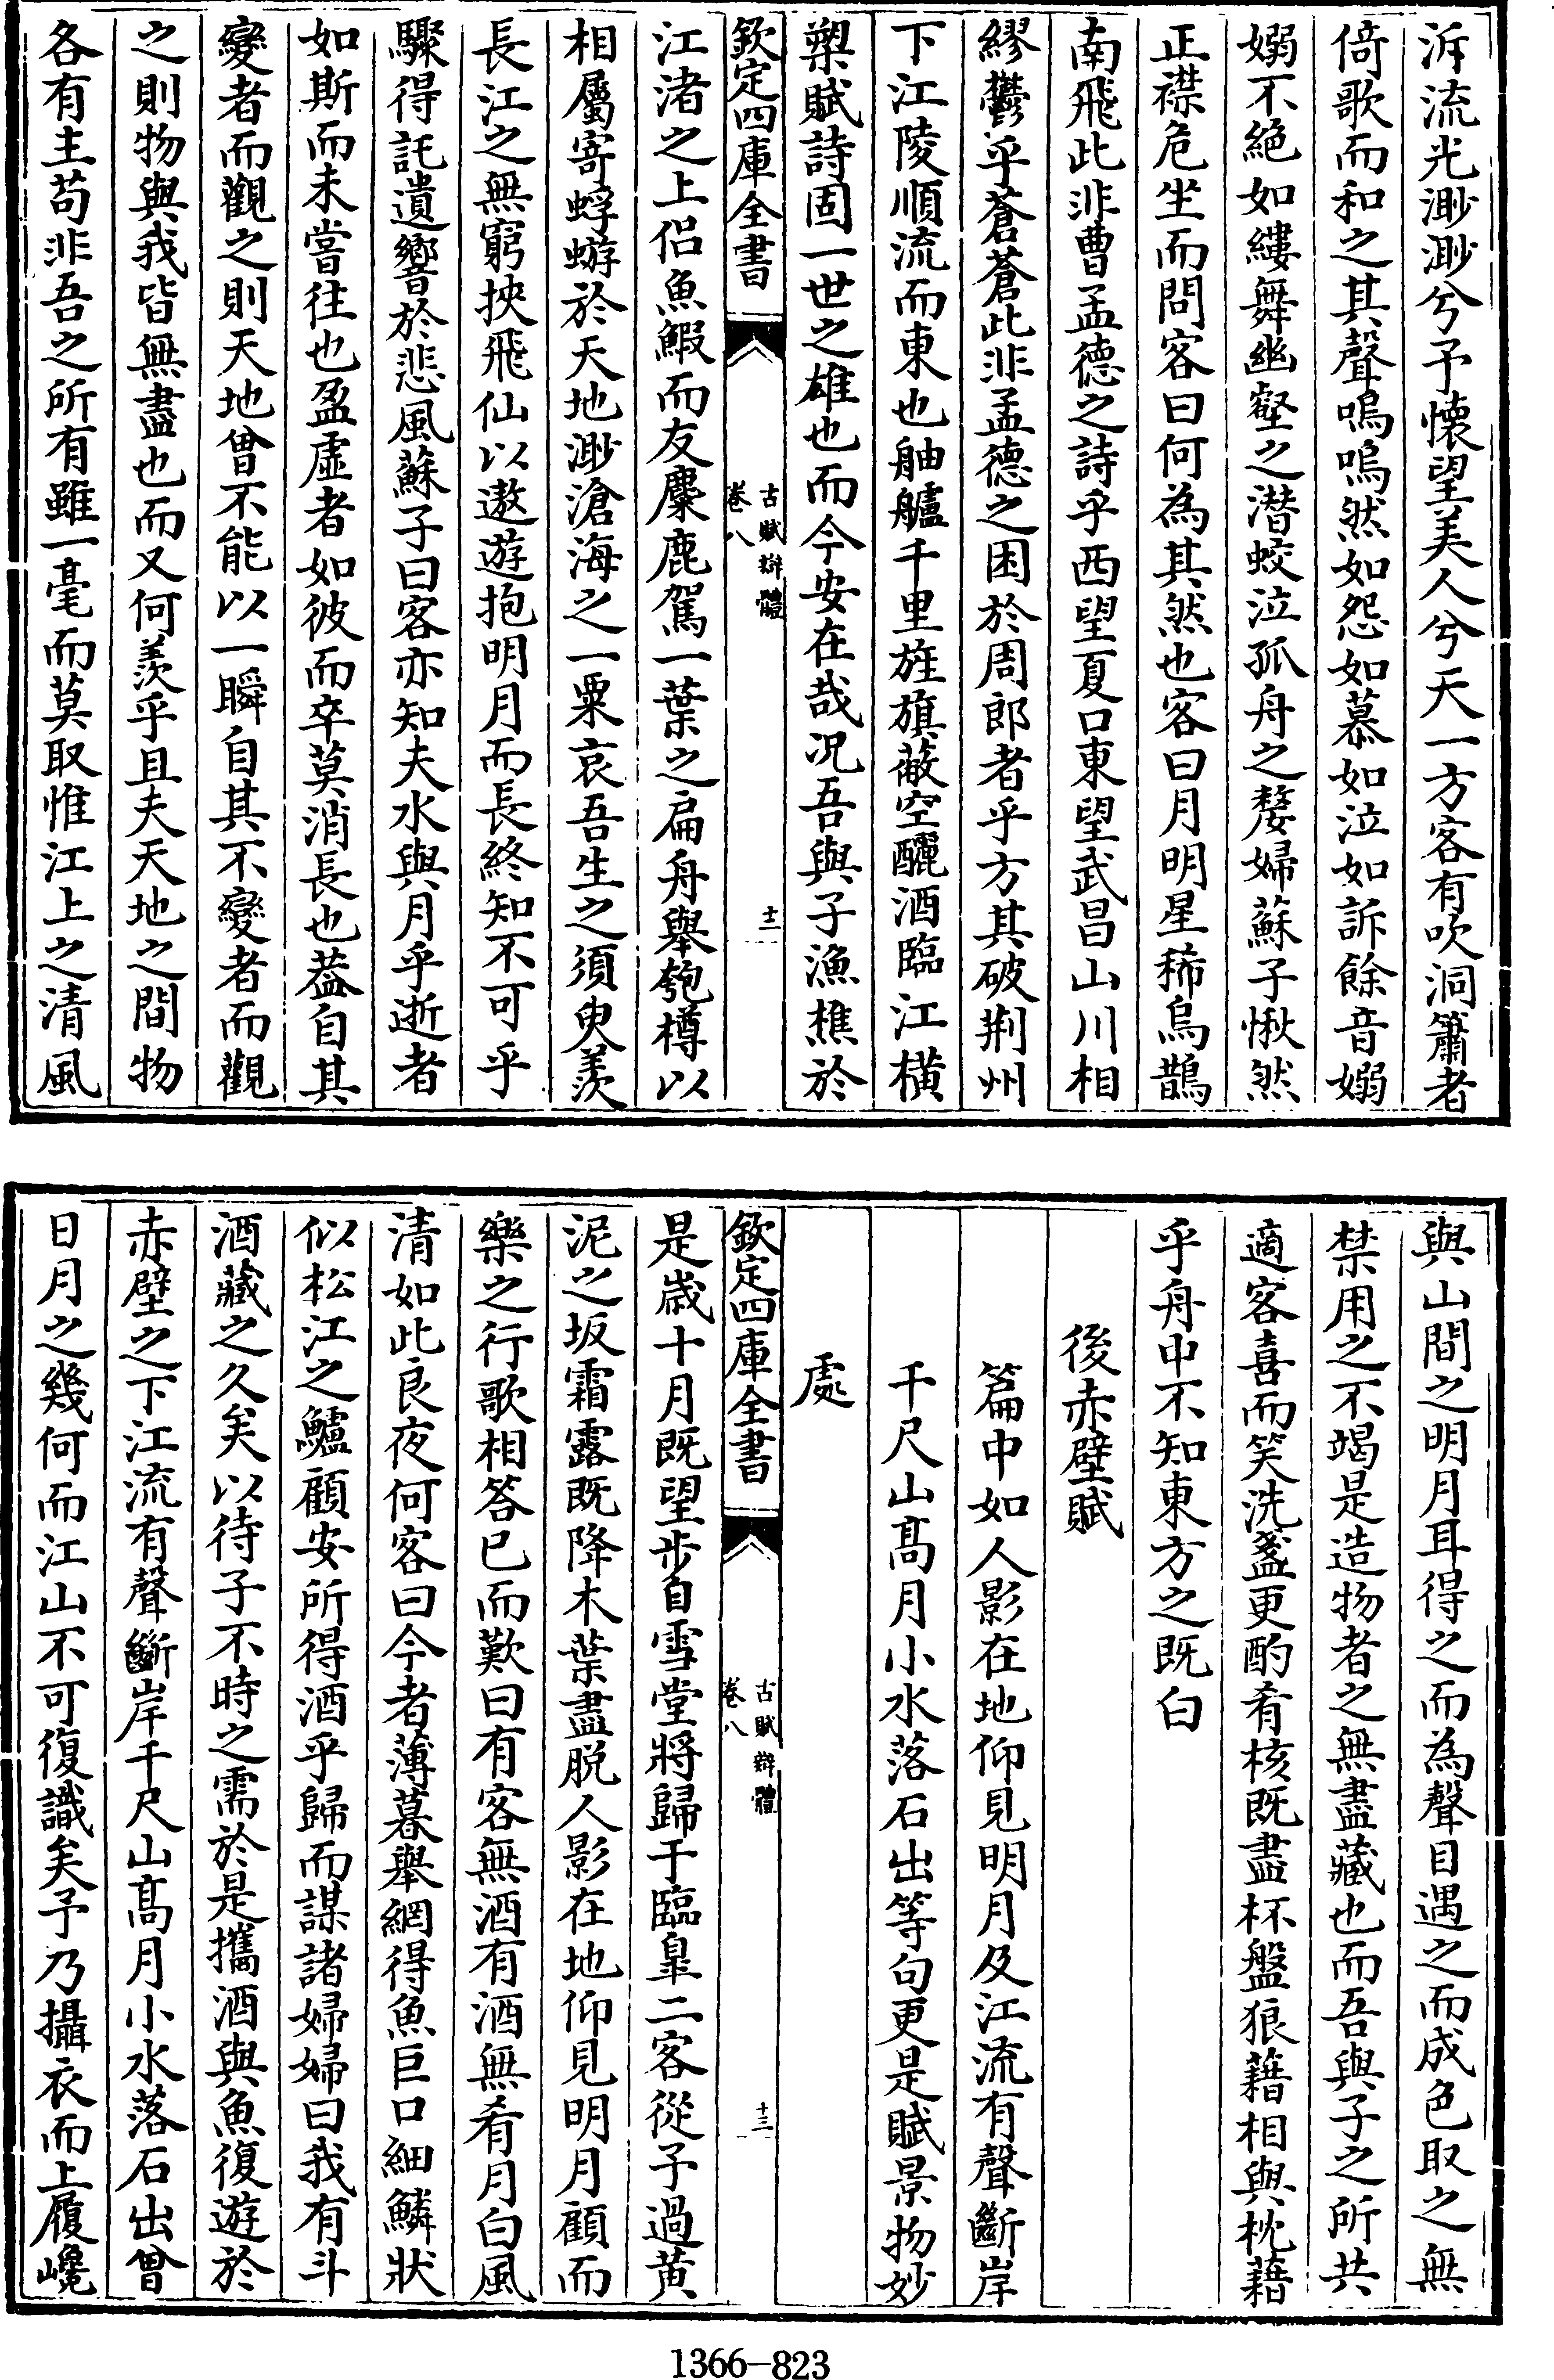 泝流光渺渺兮予懷望美人兮天一方客有吹洞簫者
倚歌而和之其聲嗚嗚然如怨如慕如泣如訴餘音嫋
嫋不絶如縷舞幽壑之潛蛟泣孤舟之嫠婦蘇子愀然
正襟危坐而問客曰何為其然也客曰月明星稀烏鵲
南飛此非曹孟德之詩乎西望夏口東望武昌山川相
繆鬱乎蒼蒼此非孟德之困於周郎者乎方其破荆州
下江陵順流而東也舳艫千里旌旗蔽空釃酒臨江橫
槊賦詩固一世之雄也而今安在哉况吾與子漁樵於
欽定四庫全書
古賦辯體
卷八
十二
江渚之上侣魚鰕而友麋鹿駕一葉之扁舟舉匏樽以
相屬寄蜉蝣於天地渺滄海之一粟哀吾生之須臾羨
長江之無窮挾飛仙以遨遊抱明月而長終知不可乎
驟得託遺響於悲風蘇子曰客亦知夫水與月乎逝者
如斯而未嘗往也盈虛者如彼而卒莫消長也葢自其
變者而觀之則天地曾不能以一瞬自其不變者而觀
之則物與我皆無盡也而又何羨乎且夫天地之間物
各有主苟非吾之所有雖一毫而莫取惟江上之清風
與山間之明月耳得之而為聲目遇之而成色取之無
禁用之不竭是造物者之無盡藏也而吾與子之所共
適客喜而笑洗盞更酌肴核既盡杯盤狼藉相與枕藉
乎舟中不知東方之既白
後赤壁賦
篇中如人影在地仰見明月及江流有聲斷岸
千尺山髙月小水落石出等句更是賦景物妙
處
欽定四庫全書
古賦辯體
卷八
十三
是歲十月既望步自雪堂將歸于臨皐二客從予過黄
泥之坂霜露既降木葉盡脱人影在地仰見明月顧而
樂之行歌相答已而歎曰有客無酒有酒無肴月白風
清如此良夜何客曰今者薄暮舉網得魚巨口細鱗狀
似松江之鱸顧安所得酒乎歸而謀諸婦婦曰我有斗
酒藏之久矣以待子不時之需於是攜酒與魚復遊於
赤壁之下江流有聲斷岸千尺山髙月小水落石出曾
日月之幾何而江山不可復識矣予乃攝衣而上履巉
1366-823